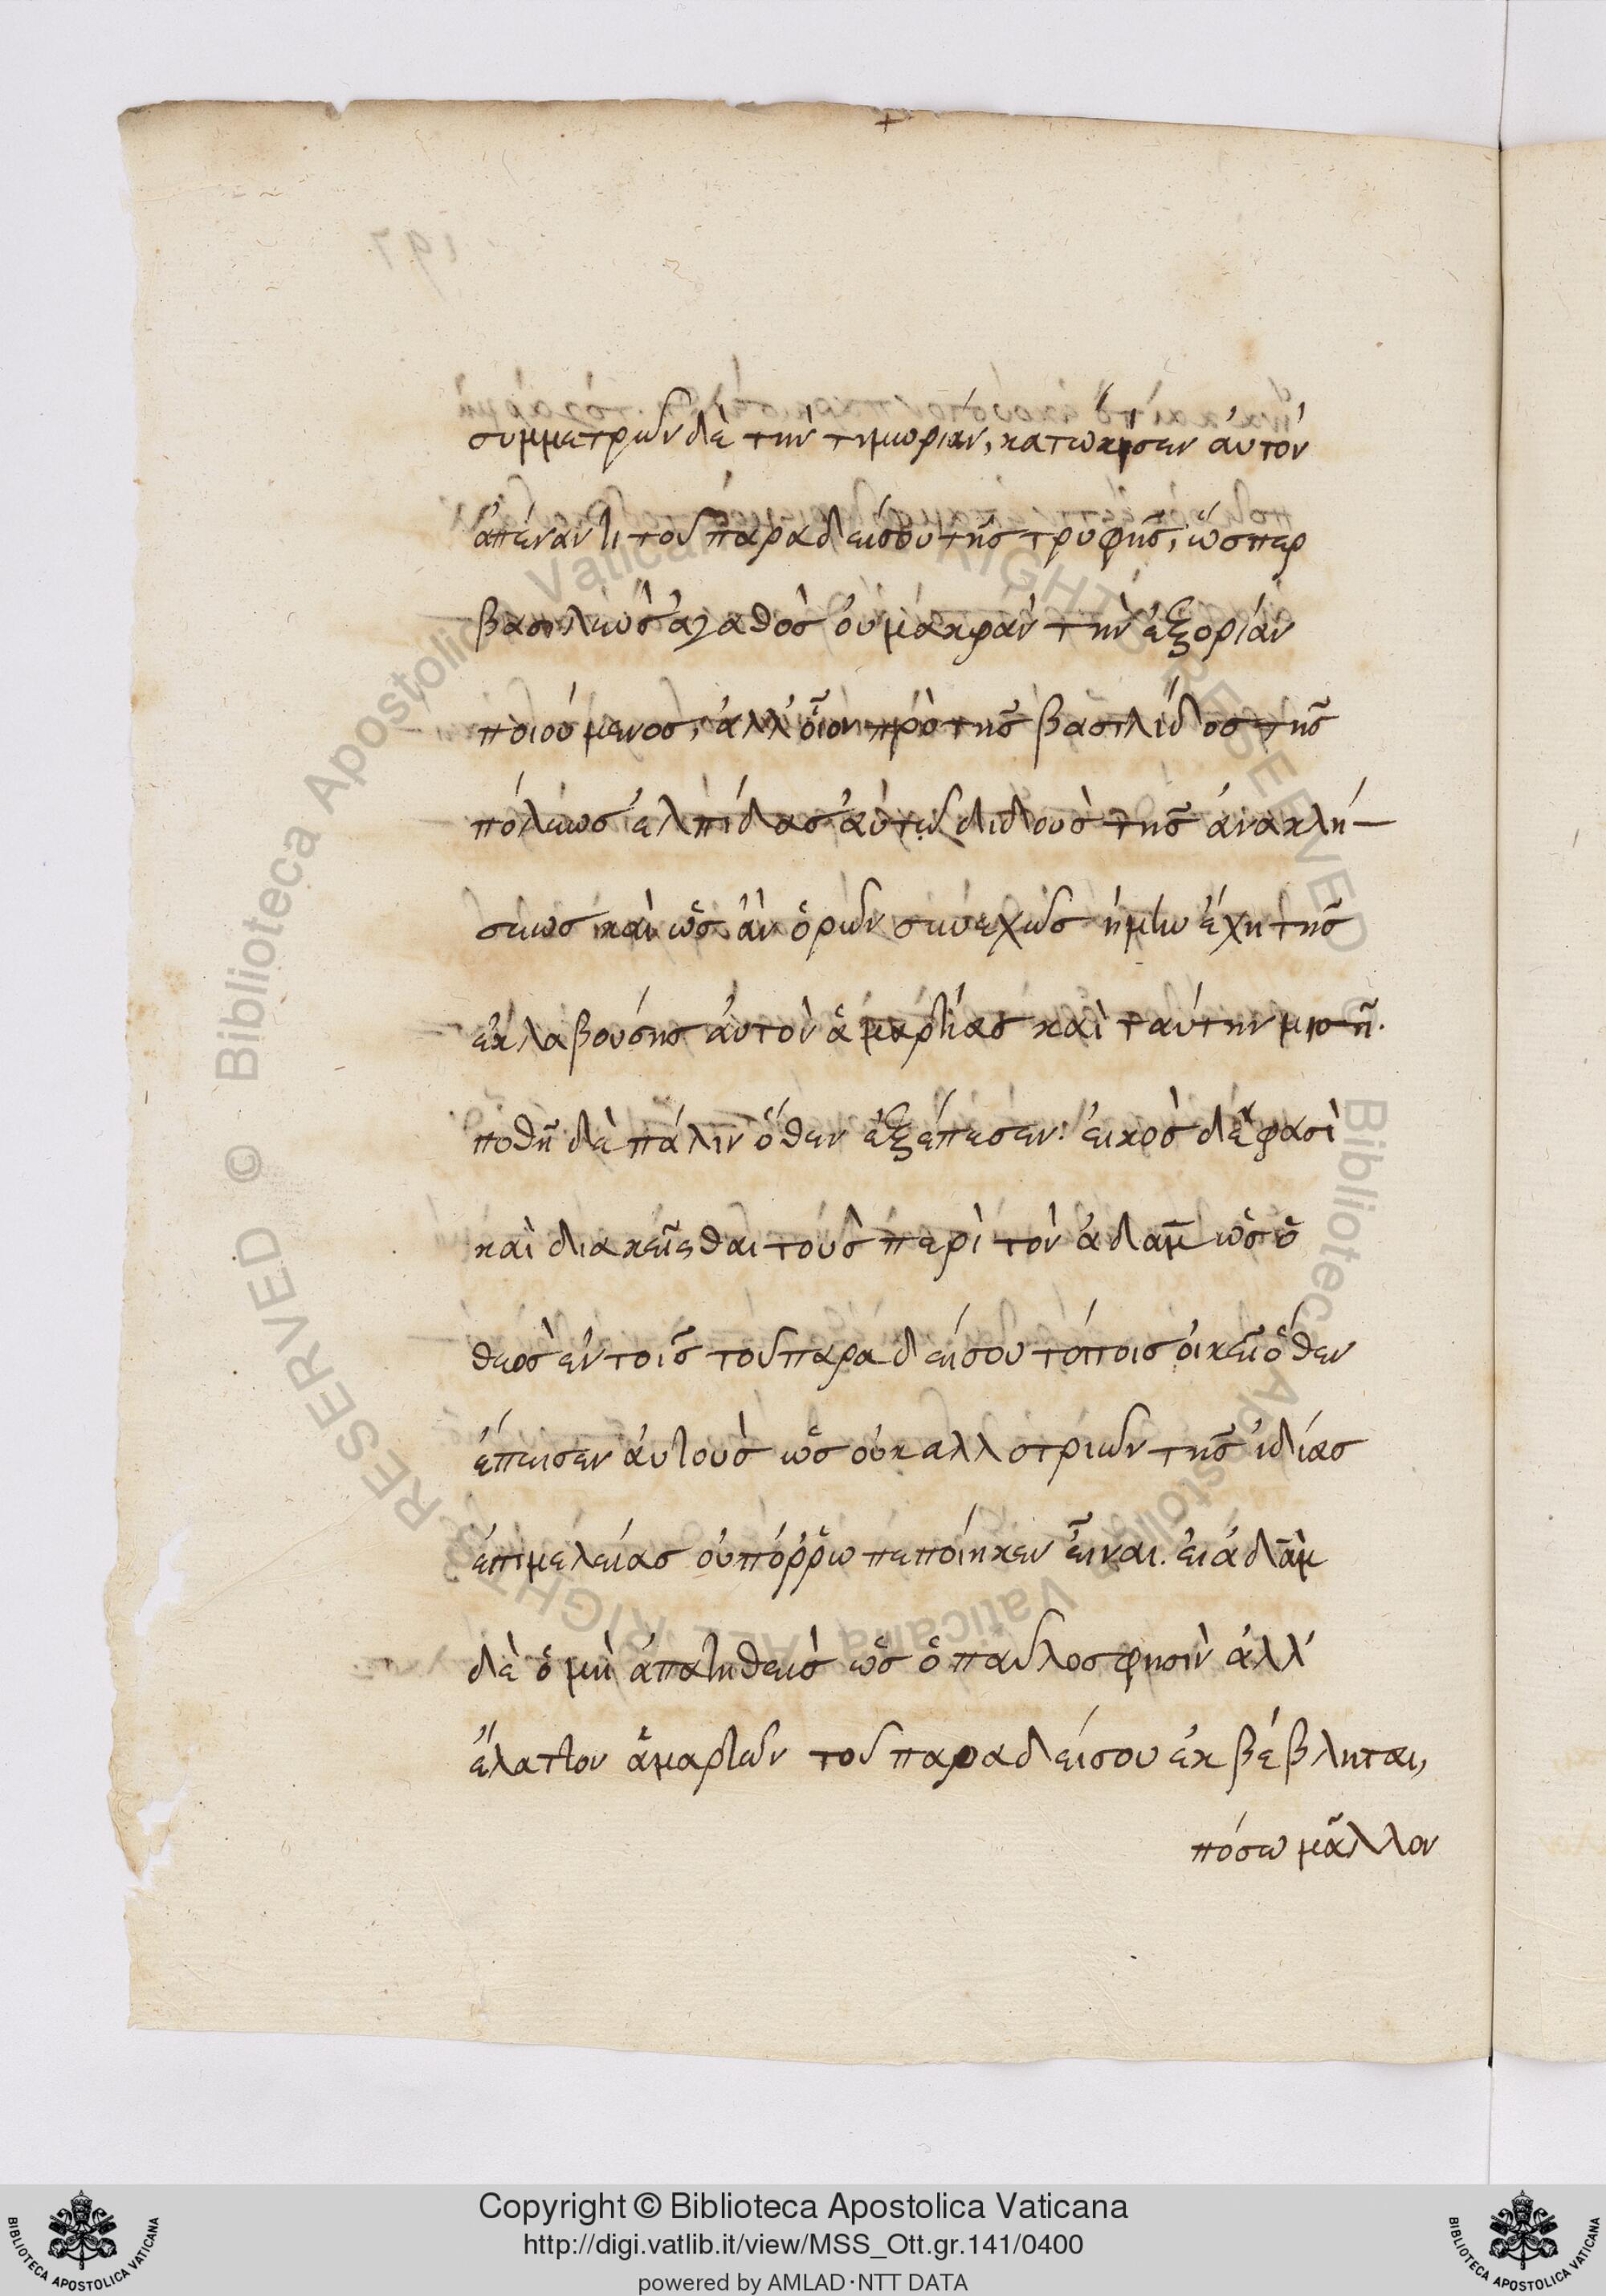 συμμετρῶν δὲ τὴν τιμωρίαν, κατώκησεν ἀυτὸν
ἀπέναντι τοῦ παραδείσου τῆς τρυφῆς, ὥσπερ
βασιλεὺς ἀγαθὸς ὀυ μακρὰν τὴν ἐξορίαν
ποιούμενος, ἀλλ' οἷον πρὸ τῆς βασιλίδος τῆς
πόλεως ἐλπίδας ἀυτῷ διδοὺς τῆς ἀνακλή-
σεως καὶ ὡς ἂν ὁρῶν συνεχῶς ἔχη τῆς
ἐκλαβούσης ἀυτὸν ἁμαρτίας καὶ ταύτην μισῆ.
ποθῆ δὲ πάλιν ὅθεν ἐξέπεσεν: ἐικὸς δέ φασὶ
καὶ διακεῖσθαι τοὺς περὶ τὸν ἀδὰμ ὡς ὁ
θεὸς ἐν τοῖς τοῦ παραδείσου τόποις ὀικεῖ ὅθεν
ἔπεισεν ἀυτοὺς ὡς ὀυκ αλλοτριῶν τῆς ἰδίας
ἐπιμελείας ὀυ πόῤῥω πεποίηκεν εἶναι. ἐι ἀδὰμ
δὲ ὁ μὴ ἀπατηθεὶς ὡς ὁ παῦλος φησὶν ἀλλ'
ἔλαττον ἁμαρτῶν τοῦ παραδείσου ἐκβέβληται,
πόσω μᾶλλον
197
Copyright © Biblioteca Apostolica Vaticana
http://digi.vatlib.it/view/MSS_Ott.gr.141/0400
powered by AMLAD·NTT DATA
BIBLIOTECA APOSTOLICA VATICANA
BIBLIOTECA APOSTOLICA VATICANA
© Biblioteca Apostolica Vaticana ALL RIGHTS RESERVED